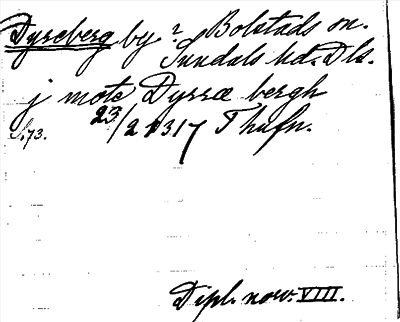 Dyreberg by? Bolstads sn.
Sundals hd. Dls.
j mote Dyrræ bergh
S. 73. 23/2 1317 Thufn.
Dipl. norv. VIII.